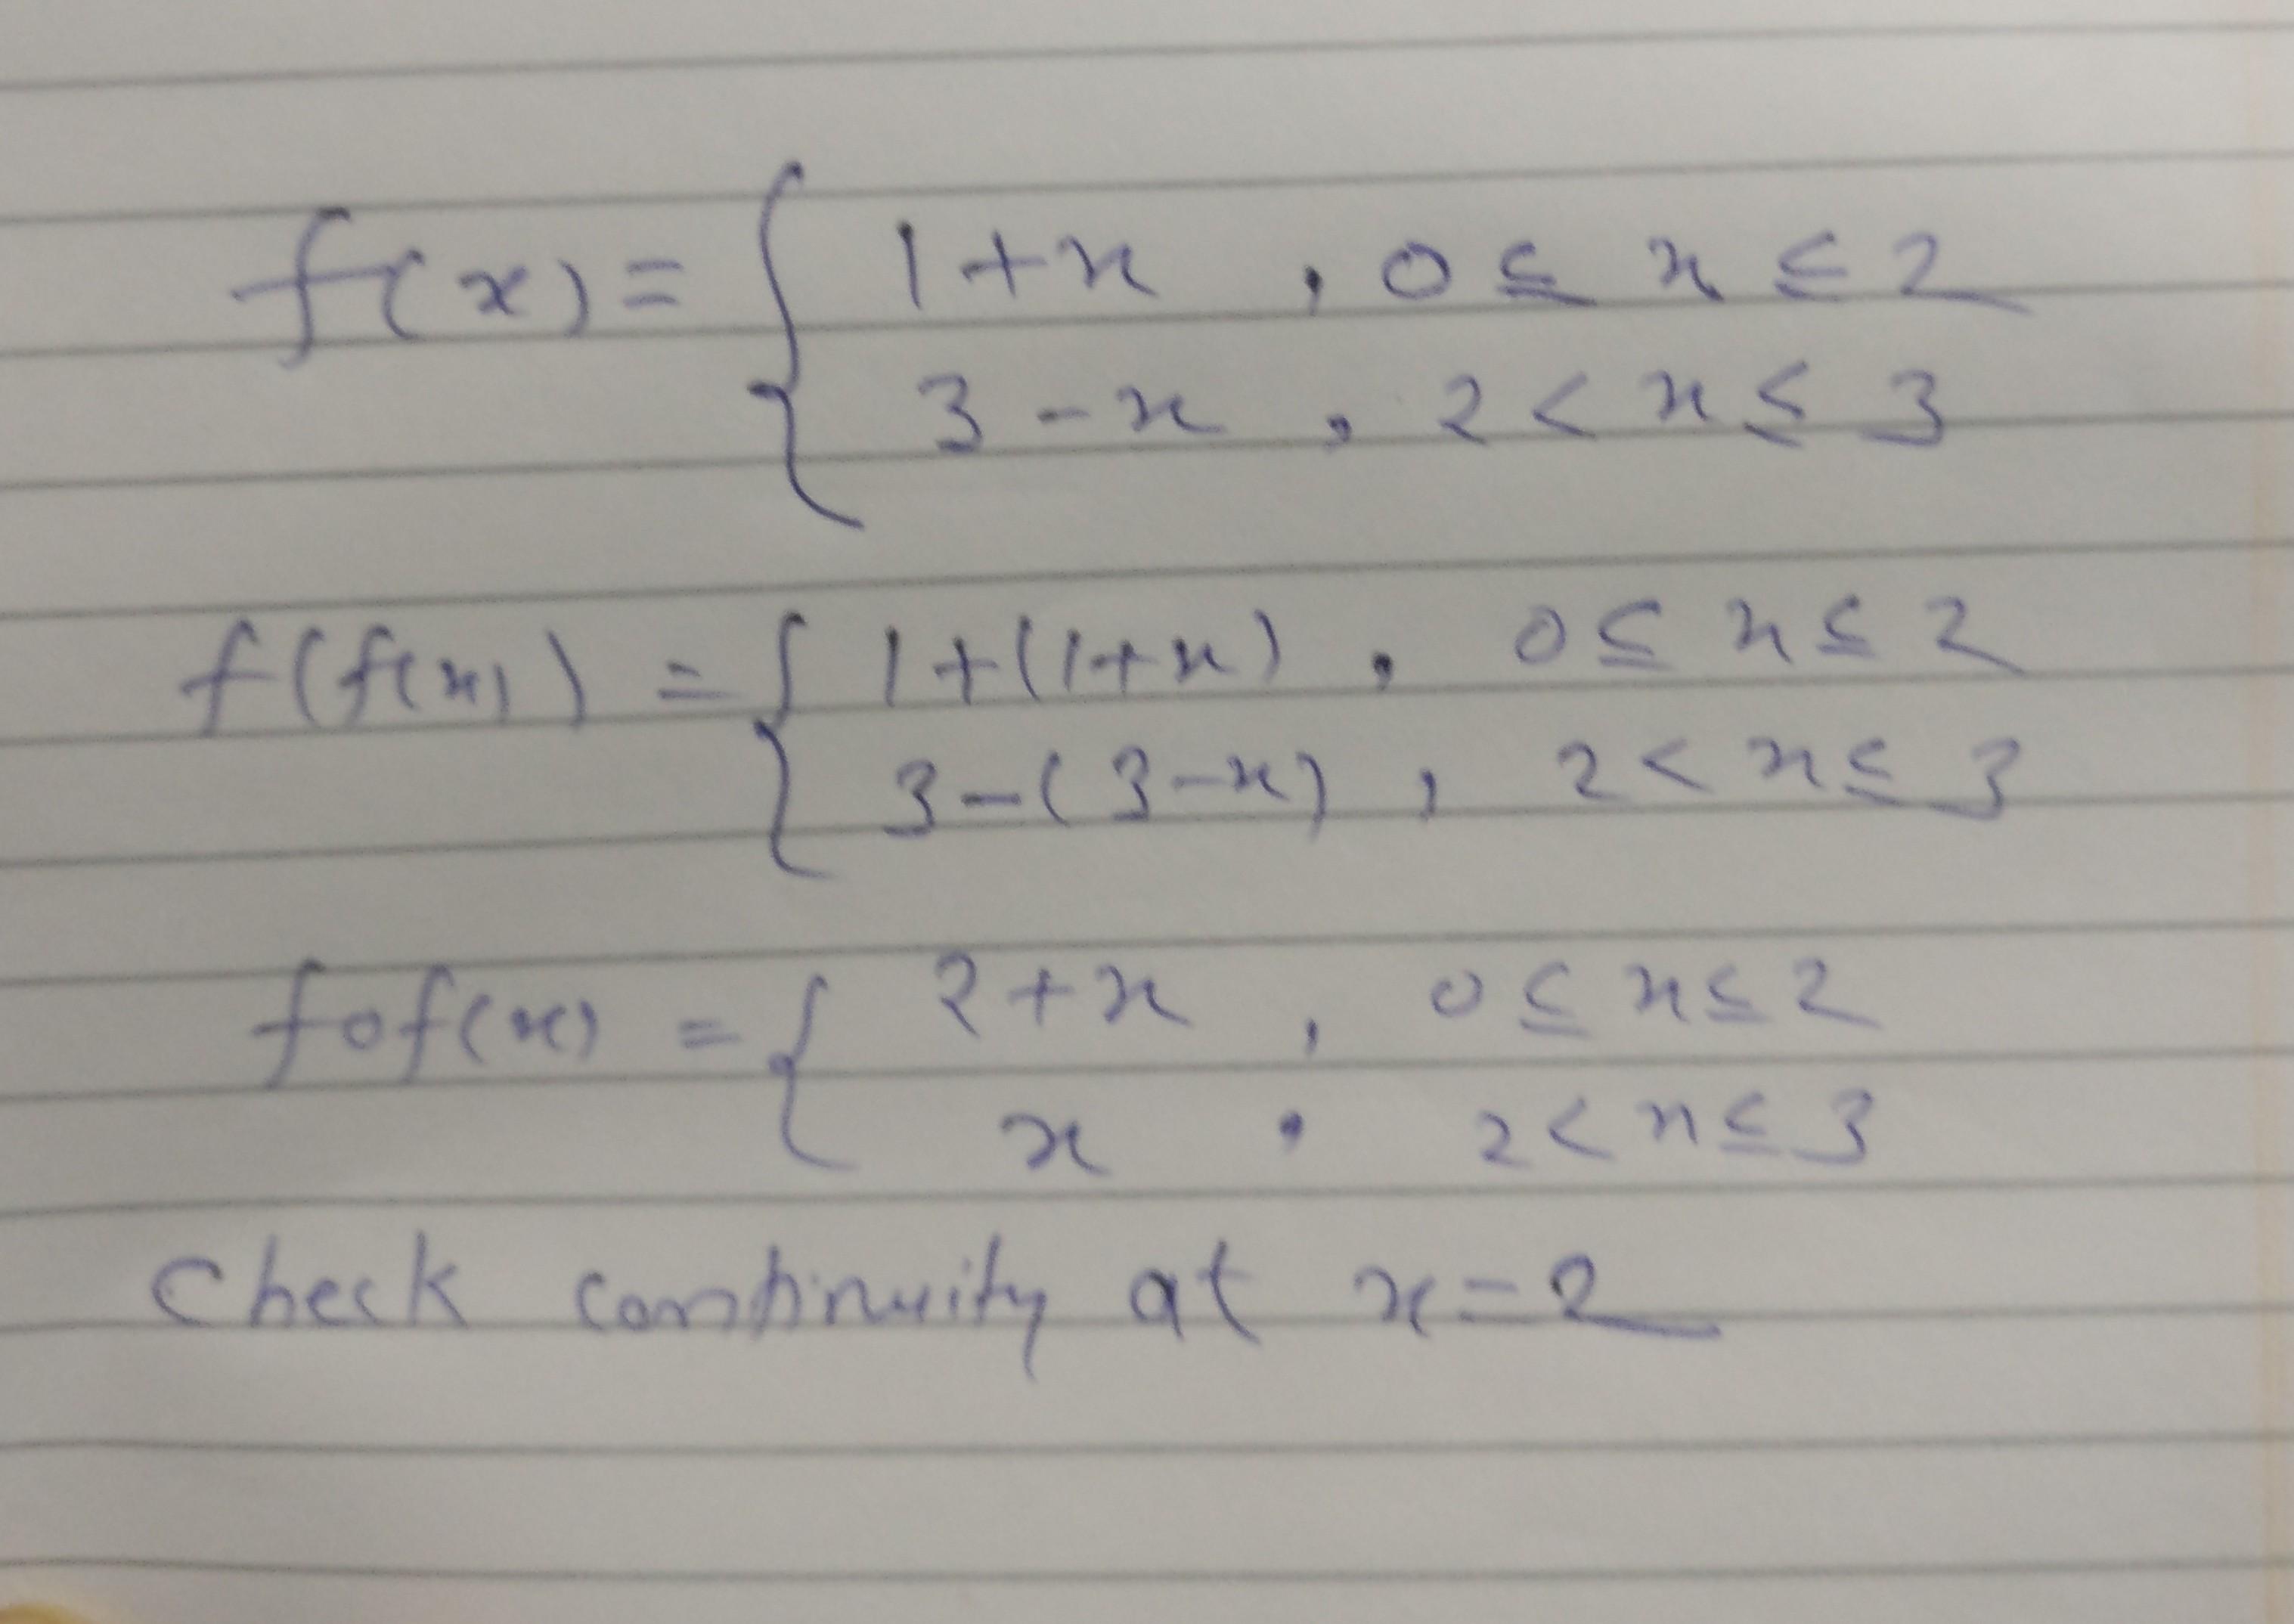 f(x) = { 1+x , 0 ≤ x ≤ 2
3-x , 2 < x ≤ 3
f(f(x)) = { 1+(1+x) , 0 ≤ x ≤ 2
3-(3-x) , 2 < x ≤ 3
fof(x) = { 2+x , 0 ≤ x ≤ 2
x , 2 < x ≤ 3
Check continuity at x=2